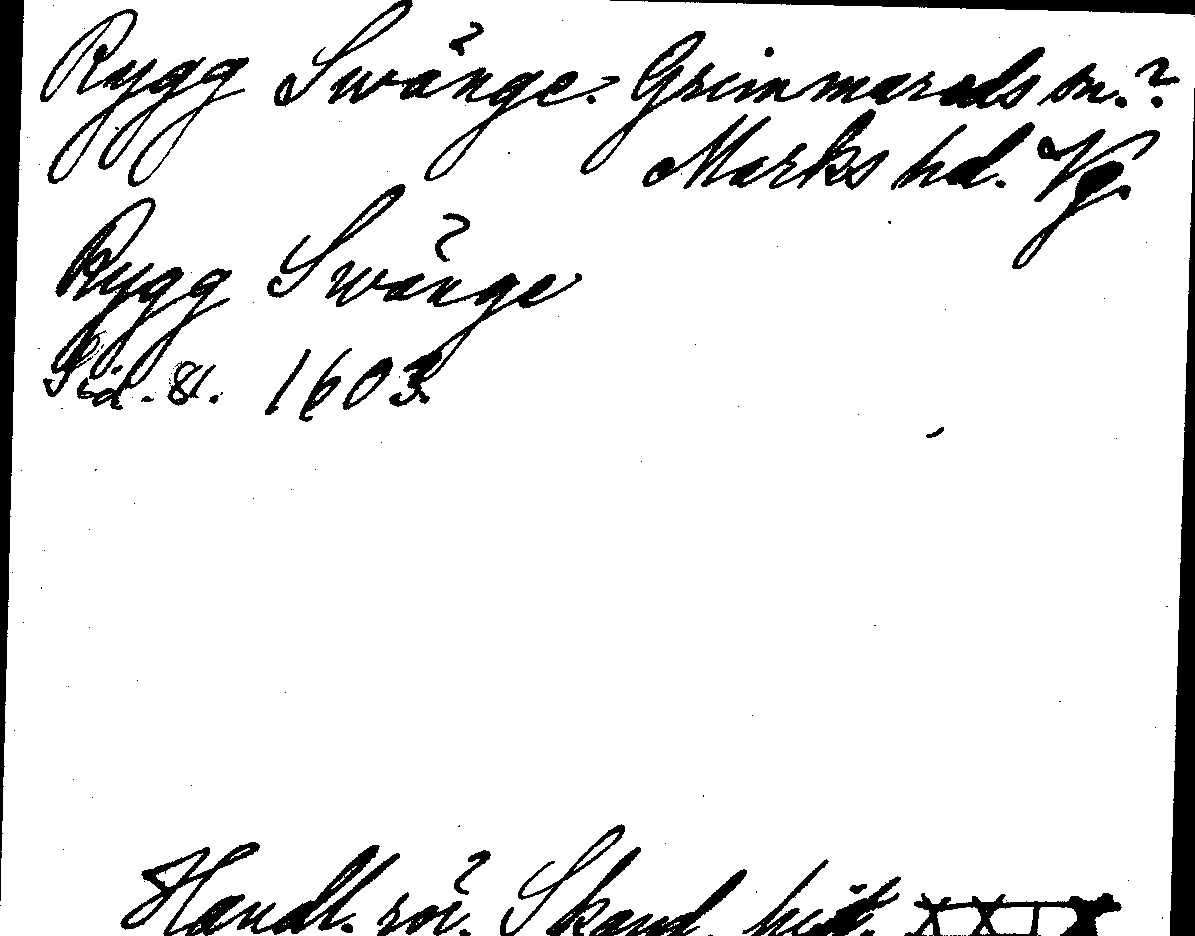 Rygg Swänge. Grimmareds sn.?
Marks hd. Vg.
Rygg Swänge
Sid. 81. 1603.
Handl. rör. Skand. hist. XXIX